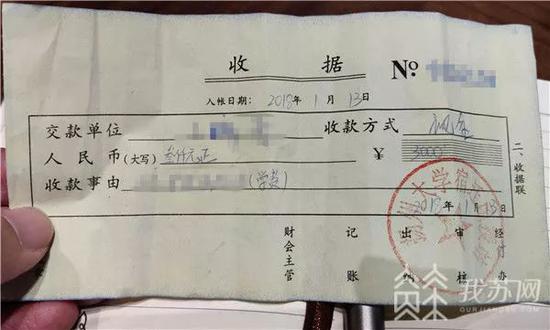 收 据 №
入帐日期: 2018年1月13日
交款单位 收款方式 现金
人民币(大写) 叁仟元正 ¥ 3000
收款事由 (学费)
2018年1月13日
二、收据联
财会主管 记账 出纳 审核 经办
我苏网
OURJIANGSU.COM